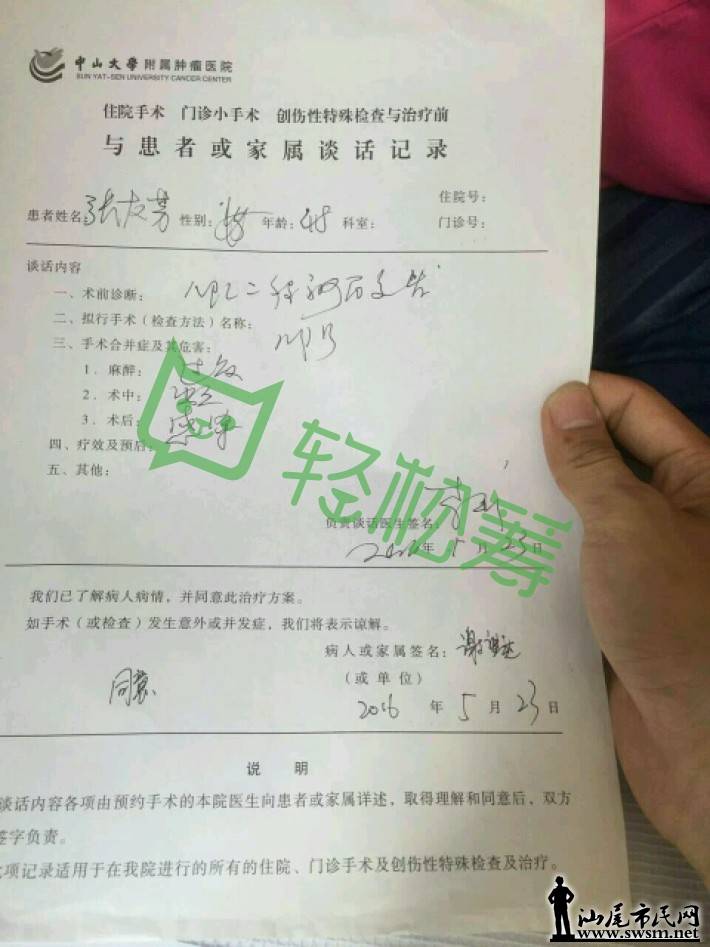 中山大學附属肿瘤医院
SUN YAT-SEN UNIVERSITY CANCER CENTER
住院手术 门诊小手术 创伤性特殊检查与治疗前
与患者或家属谈话记录
住院号：
患者姓名：张友芳 性别：女 年龄：48 科室： 门诊号：
谈话内容
一、术前诊断：
二、拟行手术（检查方法）名称：
三、手术合并症及其危害：
1．麻醉：过敏
2．术中：
3．术后：感染
四、疗效及预后：
五、其他：
轻松筹
负责谈话医生签名：
2016年 5 月 23 日
我们已了解病人病情，并同意此治疗方案。
如手术（或检查）发生意外或并发症，我们将表示谅解。
病人或家属签名：
（或单位）
同意
2016 年 5 月 23 日
说 明
谈话内容各项由预约手术的本院医生向患者或家属详述，取得理解和同意后，双方
签字负责。
项记录适用于在我院进行的所有的住院、门诊手术及创伤性特殊检查及治疗。
汕尾市民网
www.swsm.net